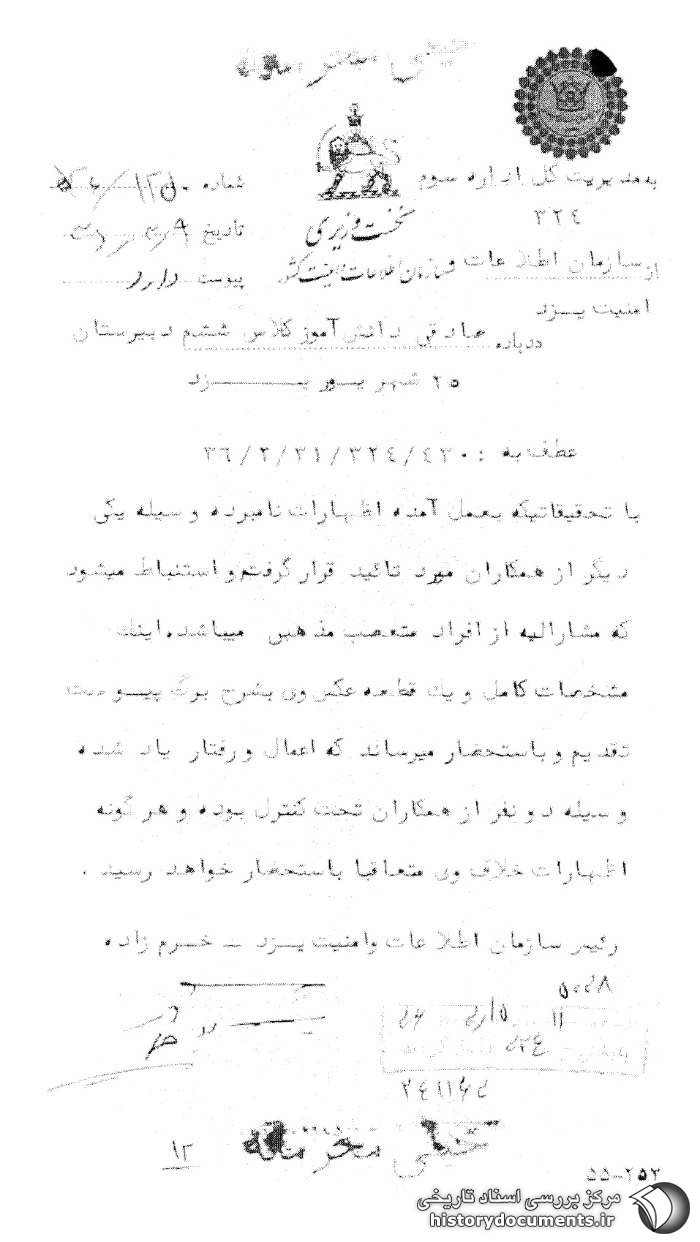 خیلی محرمانه
به مدیریت کل اداره سوم
۳۲٤
از سازمان اطلاعات و
امنیت یزد
شماره
تاریخ
پیوست دارد
نخست وزیری
سازمان اطلاعات و امنیت کشور
درباره صادقی دانش آموز کلاس ششم دبیرستان
۲۵ شهریور یزد
عطف به : ۳٦/۲/۳۱/۳۲٤/٤۳۰
با تحقیقاتیکه بعمل آمده اظهارات نامبرده وسیله یکی
دیگر از همکاران مورد تائید قرار گرفته و استنباط میشود
که مشارالیه از افراد متعصب مذهبی میباشد. اینک
مشخصات کامل و یک قطعه عکس وی بشرح برگ پیوست
تقدیم و باستحضار میرساند که اعمال و رفتار یاد شده
وسیله دو نفر از همکاران تحت کنترل بوده و هر گونه
اظهارات خلاف وی متعاقبا باستحضار خواهد رسید .
رئیس سازمان اطلاعات و امنیت یزد – خرم زاده
خیلی محرمانه
۱۲
۵۵-۲۵۲
مرکز بررسی اسناد تاریخی
historydocuments.ir